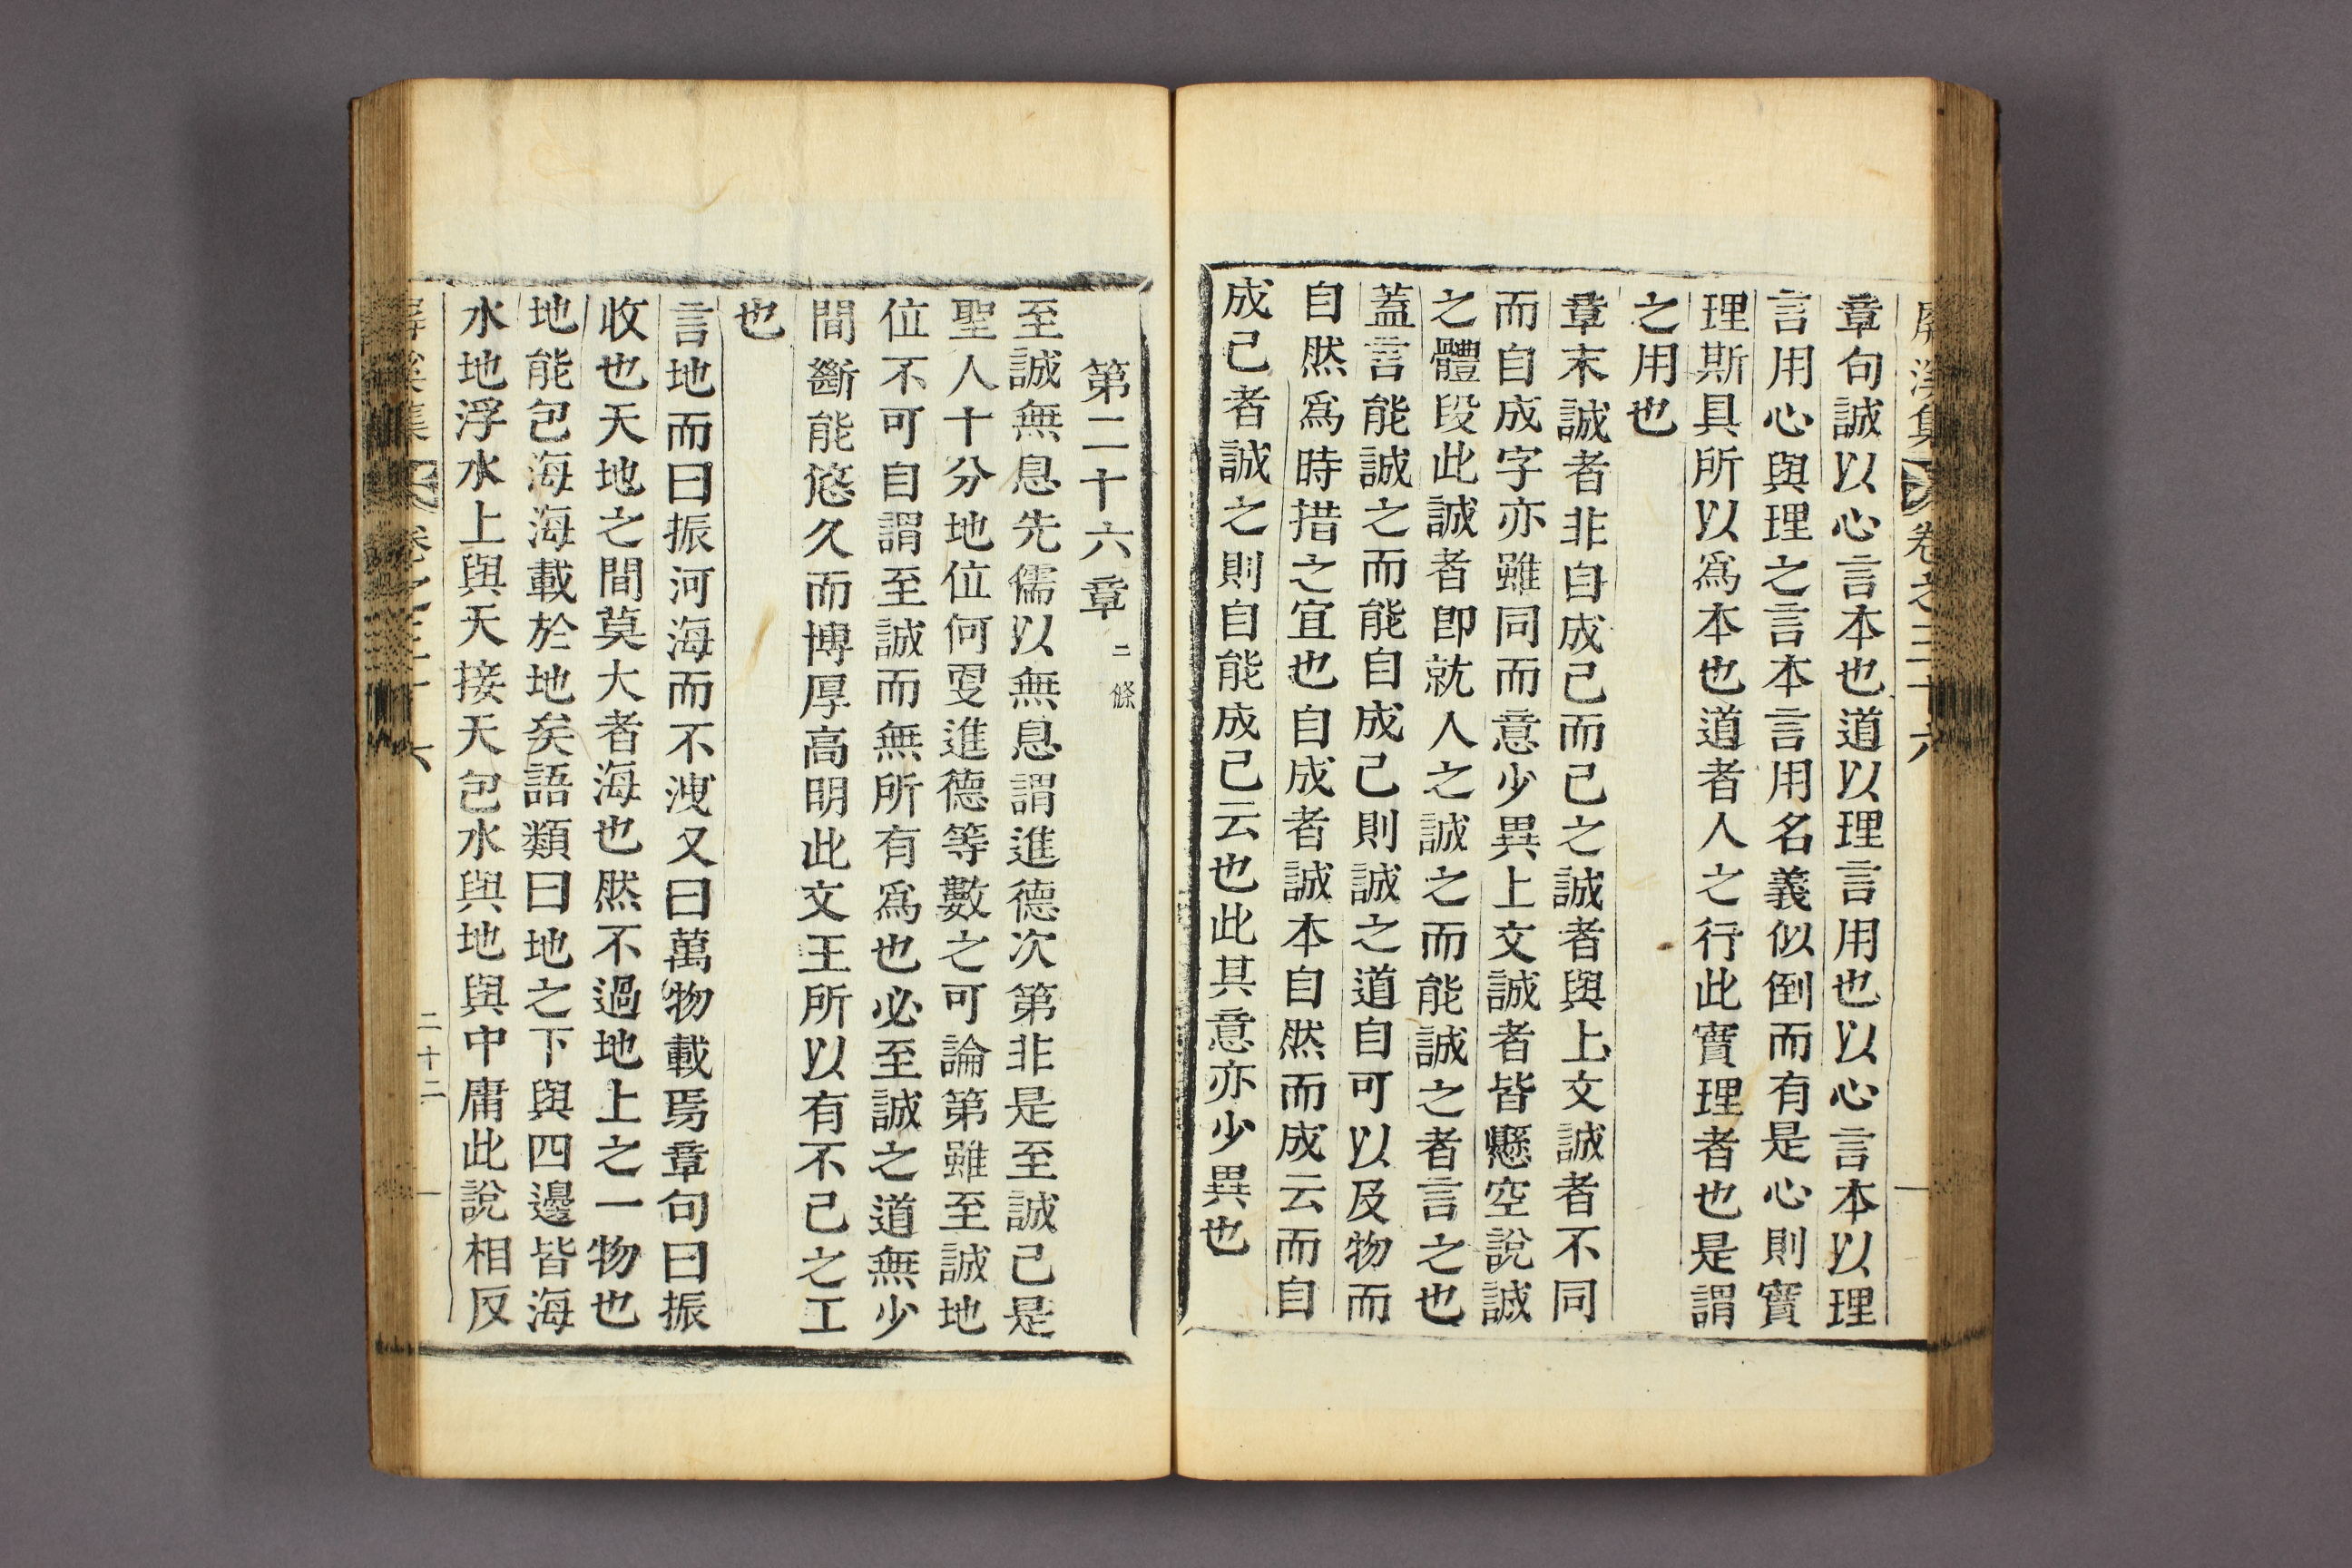 屏溪集 卷之三十六
章句誠以心言本也道以理言用也以心言本以理
言用心與理之言本言用名義似倒而有是心則實
理斯具所以爲本也道者人之行此實理者也是謂
之用也
章末誠者非自成己而已之誠者與上文誠者不同
而自成字亦雖同而意少異上文誠者皆懸空說誠
之體段此誠者卽就人之誠之而能誠之者言之也
蓋言能誠之而能自成己則誠之道自可以及物而
自然爲時措之宜也自成者誠本自然而成云而自
成己者誠之則自能成己云也此其意亦少異也
第二十六章 二條
至誠無息先儒以無息謂進德次第非是至誠已是
聖人十分地位何更進德等數之可論第雖至誠地
位不可自謂至誠而無所有爲也必至誠之道無少
間斷能悠久而博厚高明此文王所以有不已之工
也
言地而曰振河海而不洩又曰萬物載焉章句曰振
收也天地之間莫大者海也然不過地上之一物也
地能包海海載於地矣語類曰地之下與四邊皆海
水地浮水上與天接天包水與地與中庸此說相反
屏溪集 卷之三十六 二十二